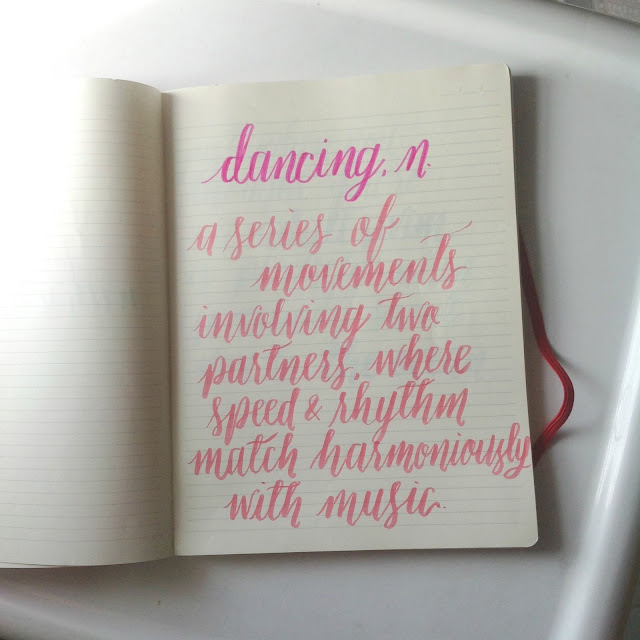 dancing, n.
a series of
movements
involving two
partners, where
speed & rhythm
match harmoniously
with music.